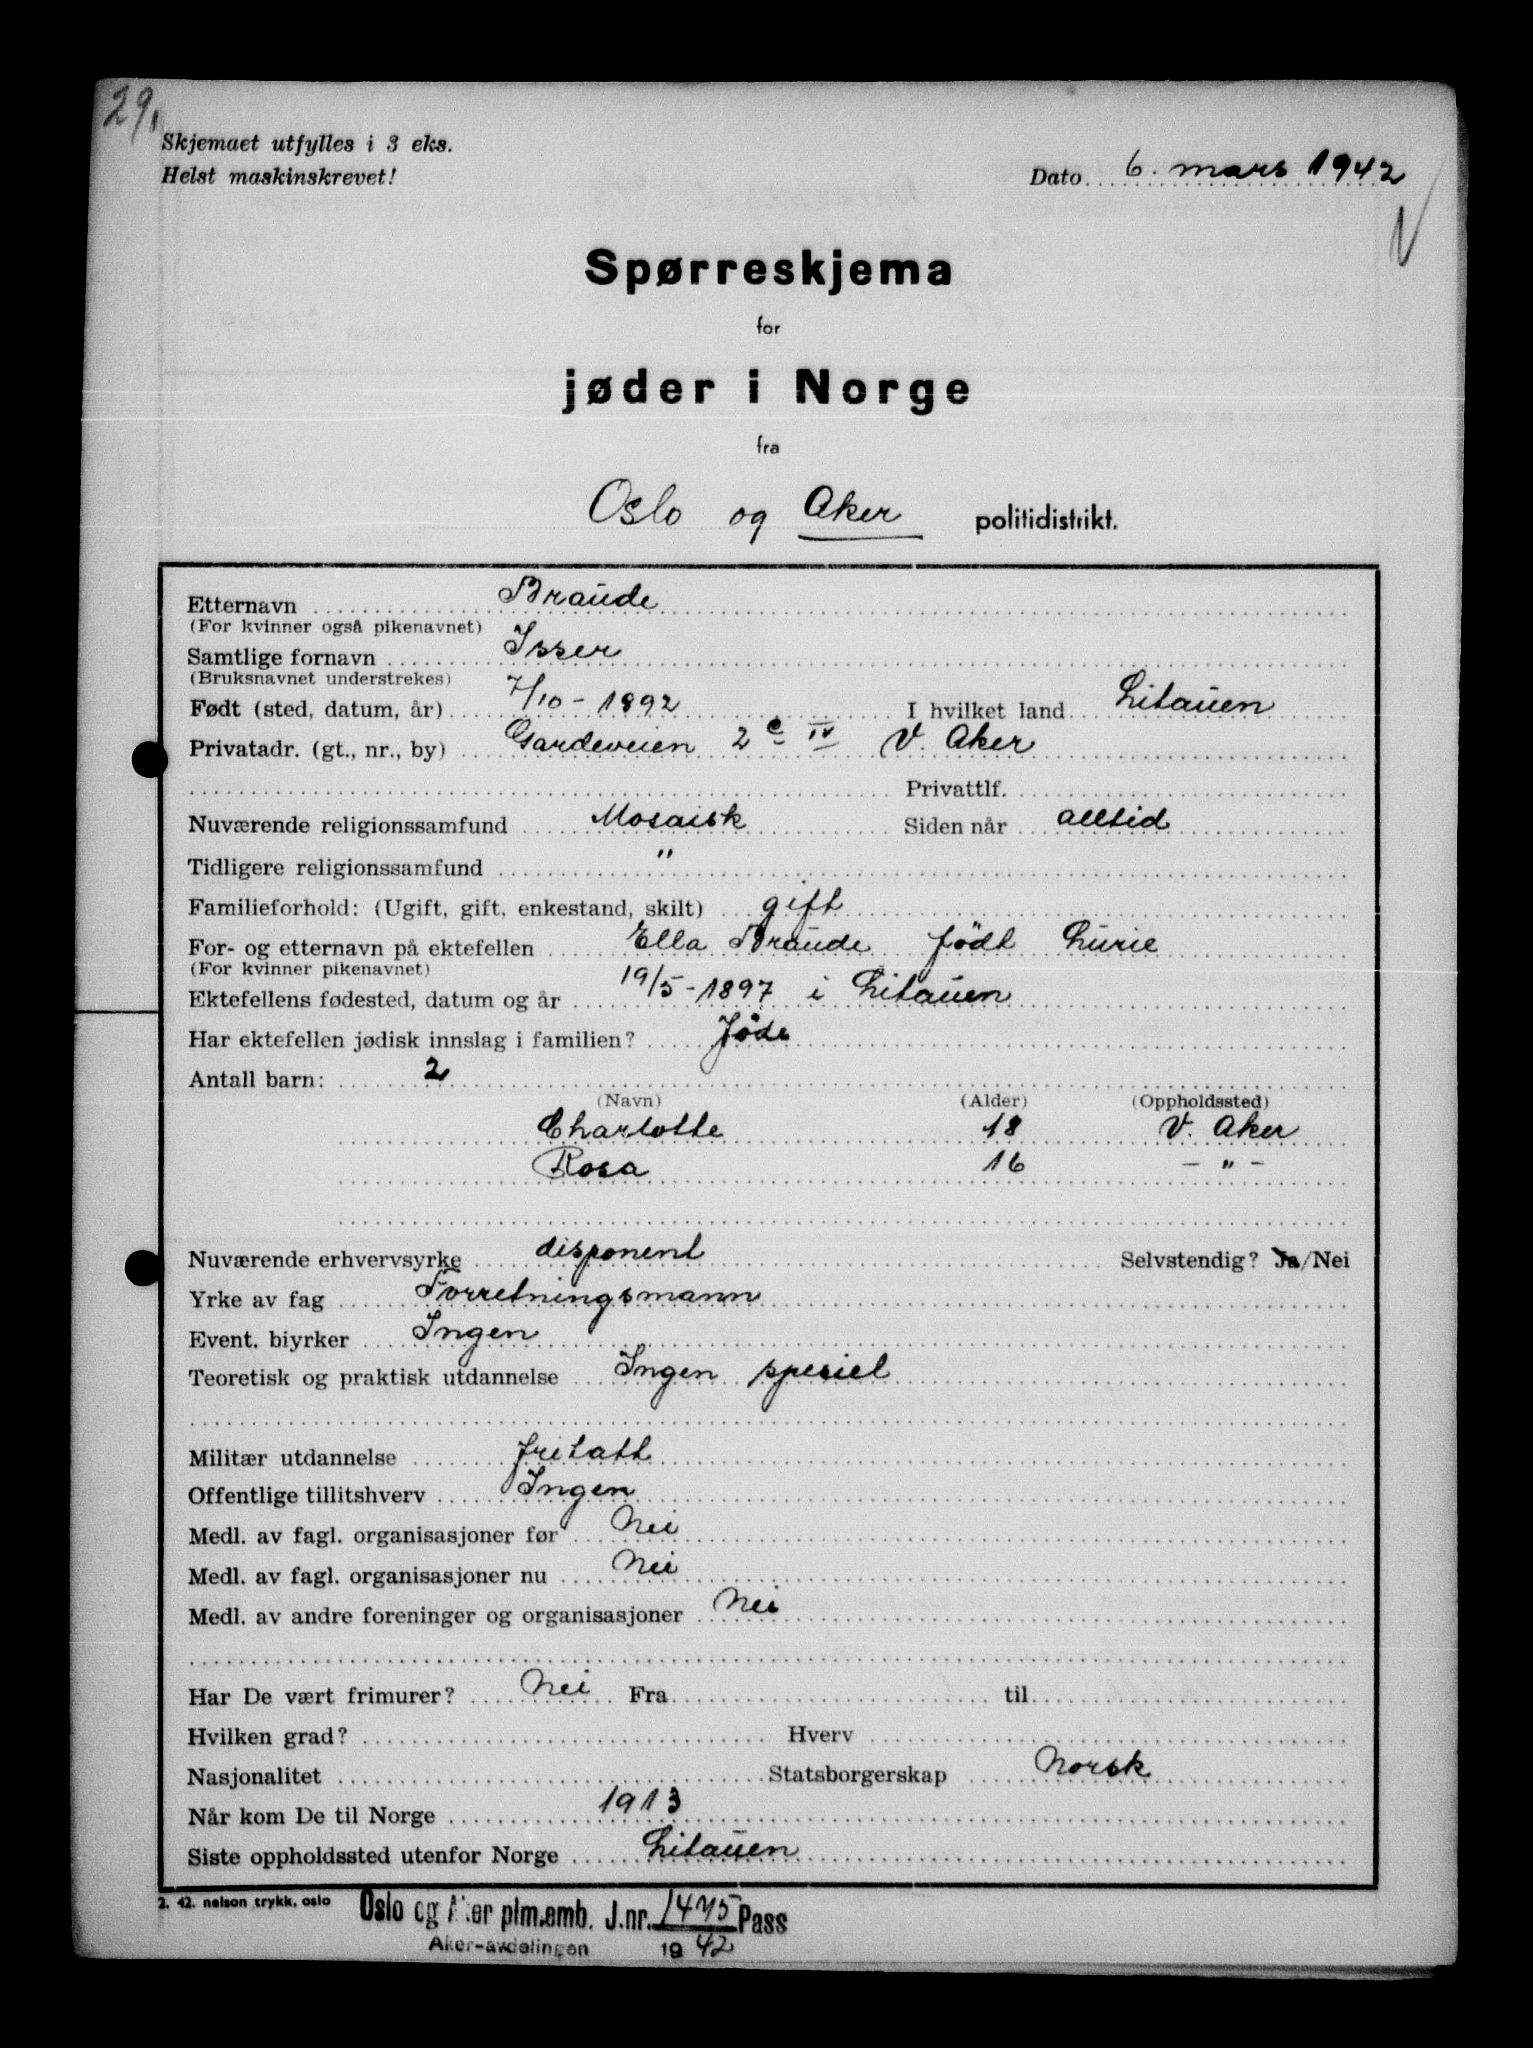 29.
Skjemaet utfylles i 3 eks.
Helst maskinskrevet!
Dato 6. mars 1942
V
Spørreskjema
for
jøder i Norge
fra
Oslo og Aker politidistrikt.
Etternavn Braude
(For kvinner også pikenavnet)
Samtlige fornavn Isser
(Bruksnavnet understrekes)
Født (sted, datum, år) 7/10 - 1892 I hvilket land Litauen
Privatadr. (gt., nr., by) Gardeveien 2 c IV V. Aker
Privattlf.
Nuværende religionssamfund Mosaisk Siden når alltid
Tidligere religionssamfund "
Familieforhold: (Ugift, gift, enkestand, skilt) gift
For- og etternavn på ektefellen Ella Braude født Lurie
(For kvinner pikenavnet)
Ektefellens fødested, datum og år 19/5 - 1897 i Litauen
Har ektefellen jødisk innslag i familien? Jøde
Antall barn: 2
(Navn) (Alder) (Oppholdssted)
Charlotte 18 V. Aker
Rosa 16 - " -
Nuværende erhvervsyrke disponent Selvstendig? Ja/Nei
Yrke av fag Forretningsmann
Event. biyrker Ingen
Teoretisk og praktisk utdannelse Ingen spesiel
Militær utdannelse fritatt
Offentlige tillitshverv Ingen
Medl. av fagl. organisasjoner før Nei
Medl. av fagl. organisasjoner nu Nei
Medl. av andre foreninger og organisasjoner Nei
Har De vært frimurer? Nei Fra til
Hvilken grad? Hverv
Nasjonalitet Statsborgerskap Norsk
Når kom De til Norge 1913
Siste oppholdssted utenfor Norge Litauen
2. 42. nelson trykk, oslo
Oslo og Aker plm.emb. J.nr. 1475 Pass
Aker-avdelingen 1942